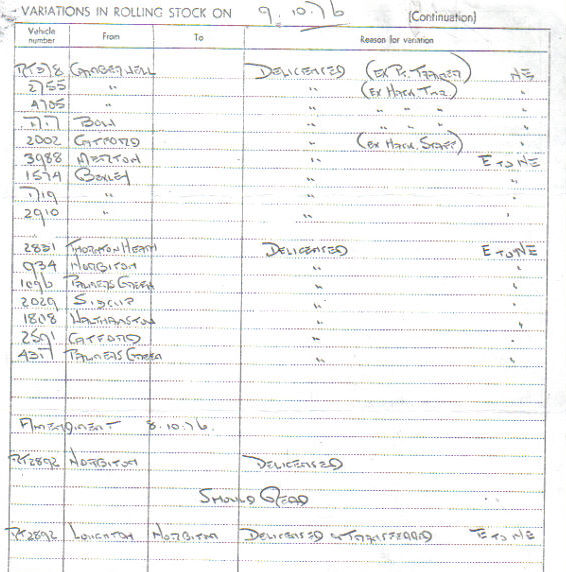 VARIATIONS IN ROLLING STOCK ON 9.10.76 (Continuation)
Vehicle number From To Reason for variation
RT378 CAMBERWELL DELICENSED (EX PT. TRAINER) NE
2755 " " (EX HACK TNR) "
4705 " " " " " "
1717 BOW " " " "
2002 CATFORD " (EX HACK STAFF) "
3988 MERTON " E TO NE
1574 BEXLEY " "
1719 " " "
2910 " " "
2831 THORNTON HEATH DELICENSED E TO NE
934 NORBITON " "
1096 PALMERS GREEN " "
2029 SIDCUP " "
1808 WALTHAMSTOW " "
2591 CATFORD " "
4317 PALMERS GREEN " "
AMENDMENT 8.10.76.
RT2892 NORBITON DELICENSED
SHOULD READ
RT2892 LOUGHTON NORBITON DELICENSED & TRANSFERRED E TO NE